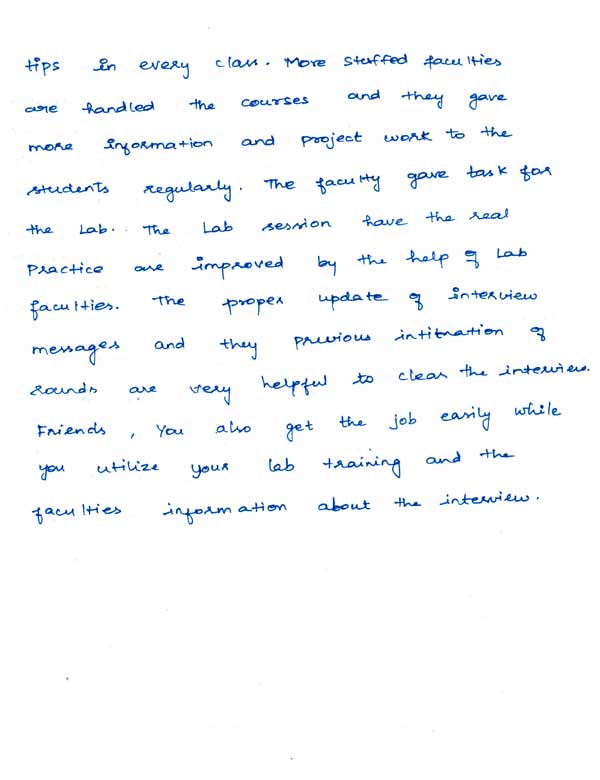 tips in every class. More stuffed faculties
are handled the courses and they gave
more information and project work to the
students regularly. The faculty gave task for
the Lab. The Lab session have the real
Practice are improved by the help of Lab
faculties. The proper update of interview
messages and they previous intitmation of
rounds are very helpful to clear the interview.
Friends, You also get the job easily while
you utilize your lab training and the
faculties information about the interview.